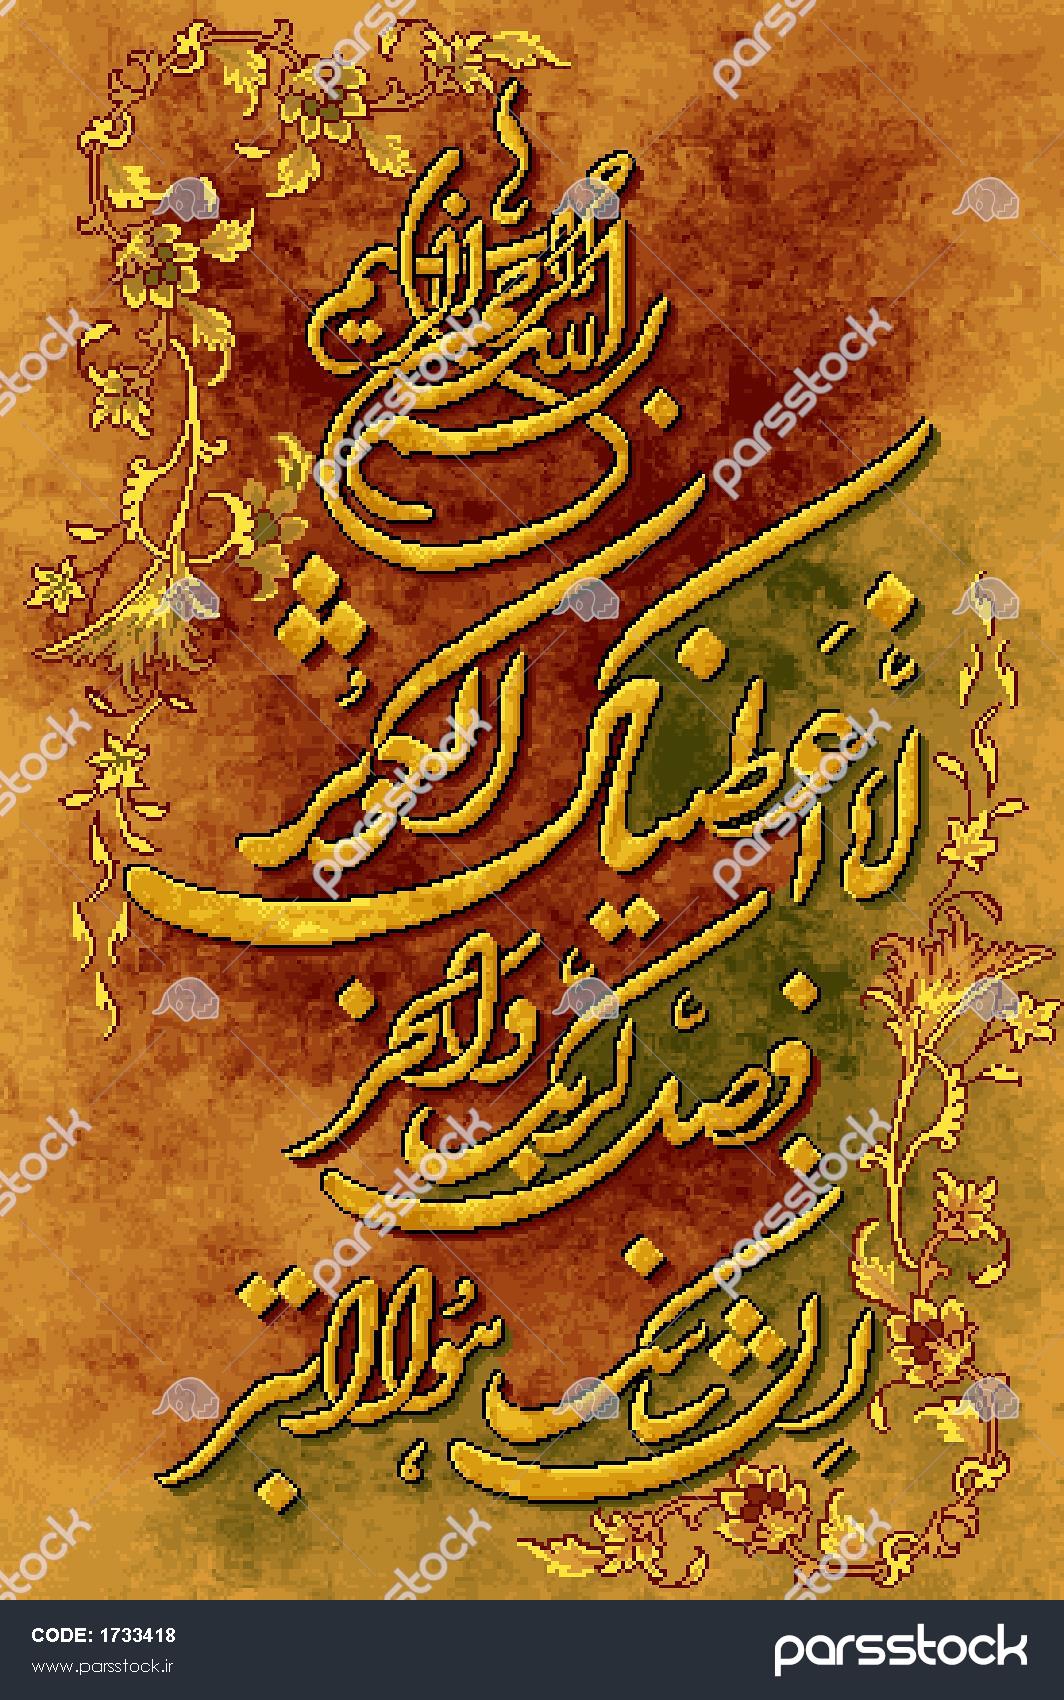 بسم الله الرحمن الرحیم
انا اعطیناک الکوثر
فصل لربک وانحر
ان شانئک هو الابتر
parsstock
CODE: 1733418
www.parsstock.ir
parsstock